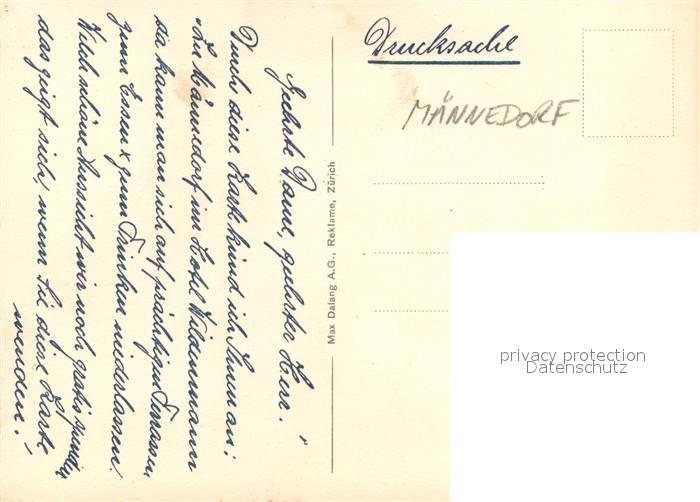 Geehrte Dame, geehrter Herr!"
Durch diese Karte künd ich Ihnen an:
"Zu Männedorf im Hotel Wildenmann
da kann man sich auf prächtigen Terrassen,
zum Essen & zum Trinken niederlassen.
Welch schöne Aussicht wir noch gratis spenden
das zeigt sich, wenn Sie diese Karte
wenden!"
Max Dalang A.G., Reklame, Zürich
Drucksache
MÄNNEDORF
privacy protection
Datenschutz